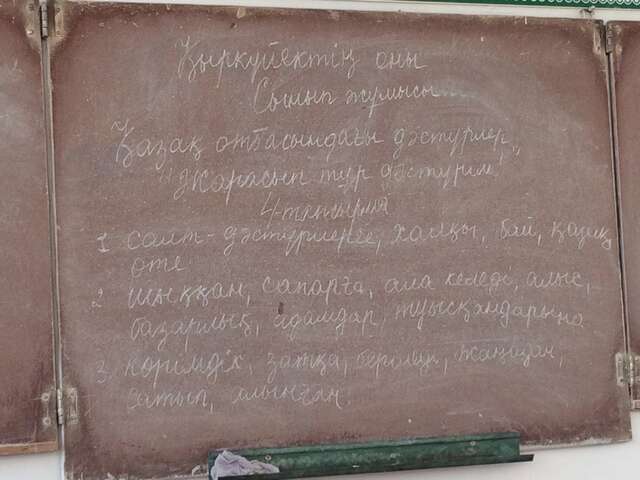 Қыркүйектің оны
Сынып жұмысы
Қазақ отбасындағы дәстүрлер
"Жарасып тұр дәстүрім"
4-тапсырма
1. салт-дәстүрлерге, халқы, бай, қазақ
өте
2. шыққан, сапарға, ала келеді, алыс,
базарлық, адамдар, туысқандарына
3. көрімдік, затқа, беріледі, жаңадан,
сатып, алынған.